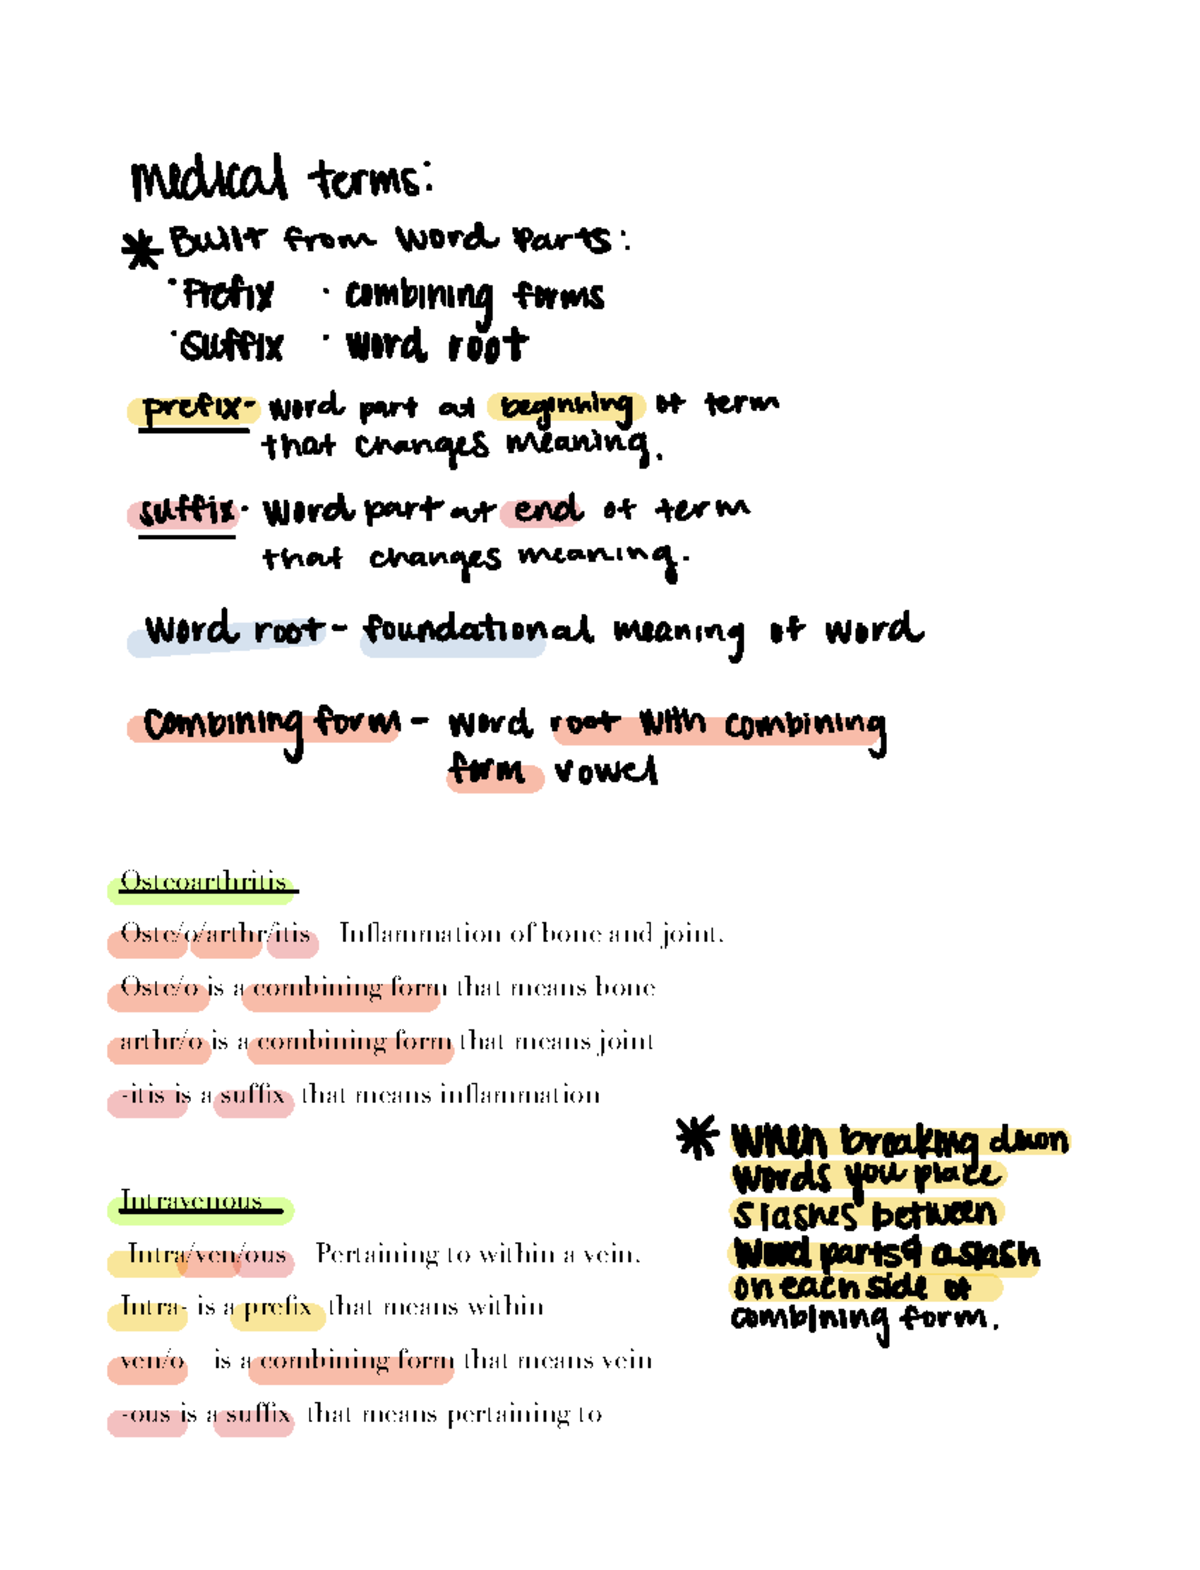 Medical terms:
* Built from word parts:
· Prefix · combining forms
· Suffix · word root
prefix- word part at beginning of term
that changes meaning.
suffix- word part at end of term
that changes meaning.
Word root - foundational meaning of word
Combining form - word root with combining
form vowel
Osteoarthritis
Oste/o/arthr/itis Inflammation of bone and joint.
Oste/o is a combining form that means bone
arthr/o is a combining form that means joint
-itis is a suffix that means inflammation
* When breaking down
words you place
slashes between
word parts & a slash
on each side of
combining form.
Intravenous
Intra/ven/ous Pertaining to within a vein.
Intra- is a prefix that means within
ven/o is a combining form that means vein
-ous is a suffix that means pertaining to